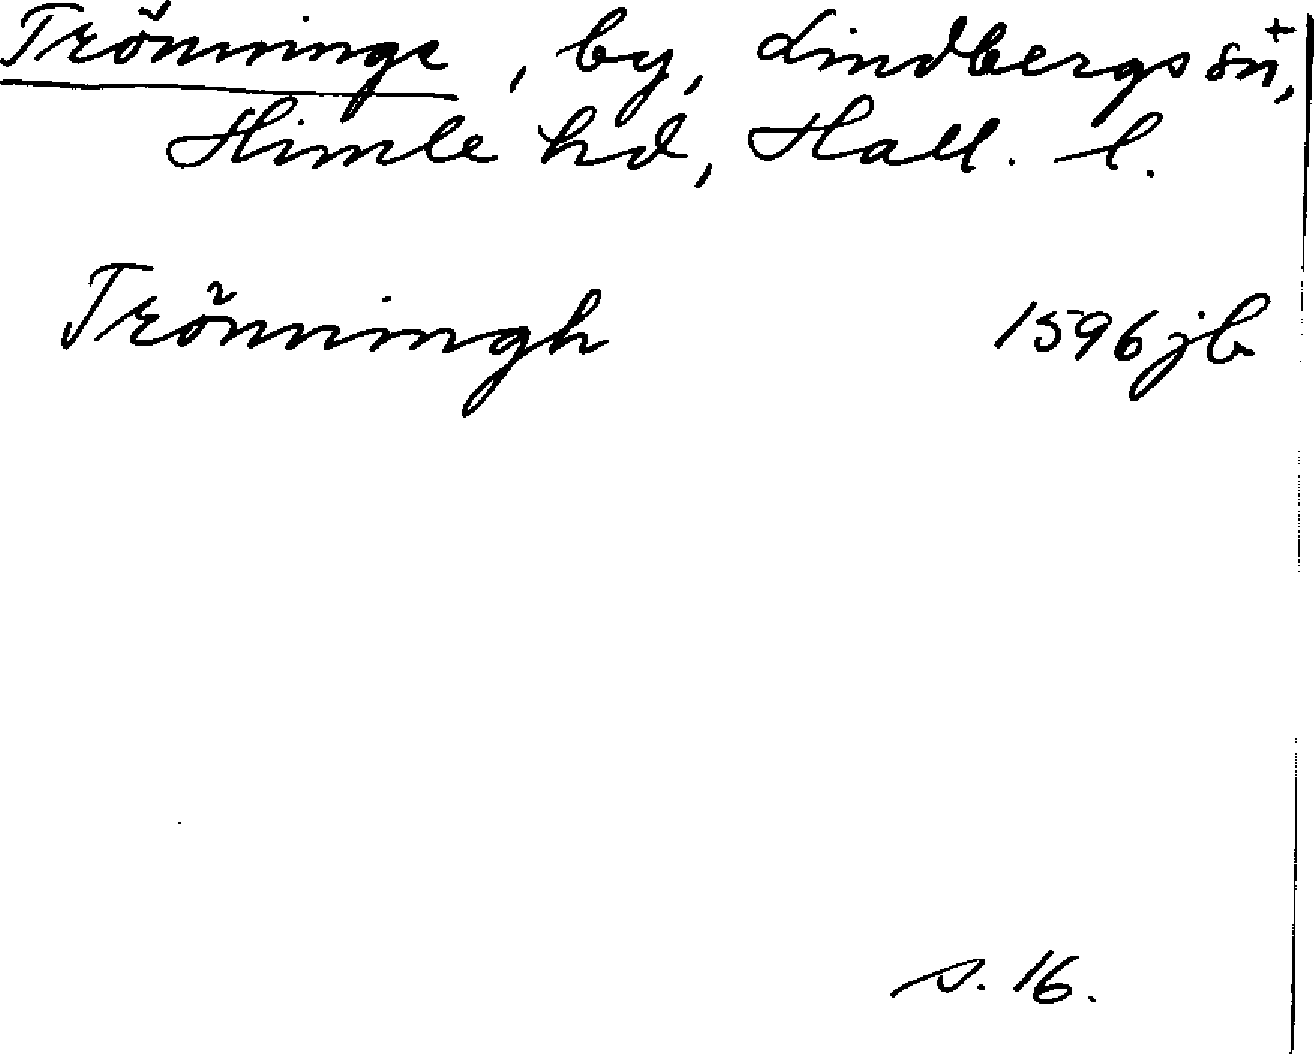 Trönninge, by, Lindbergs sn,
Himle hd, Hall. l.
Trönningh 1596 jb
s. 16.